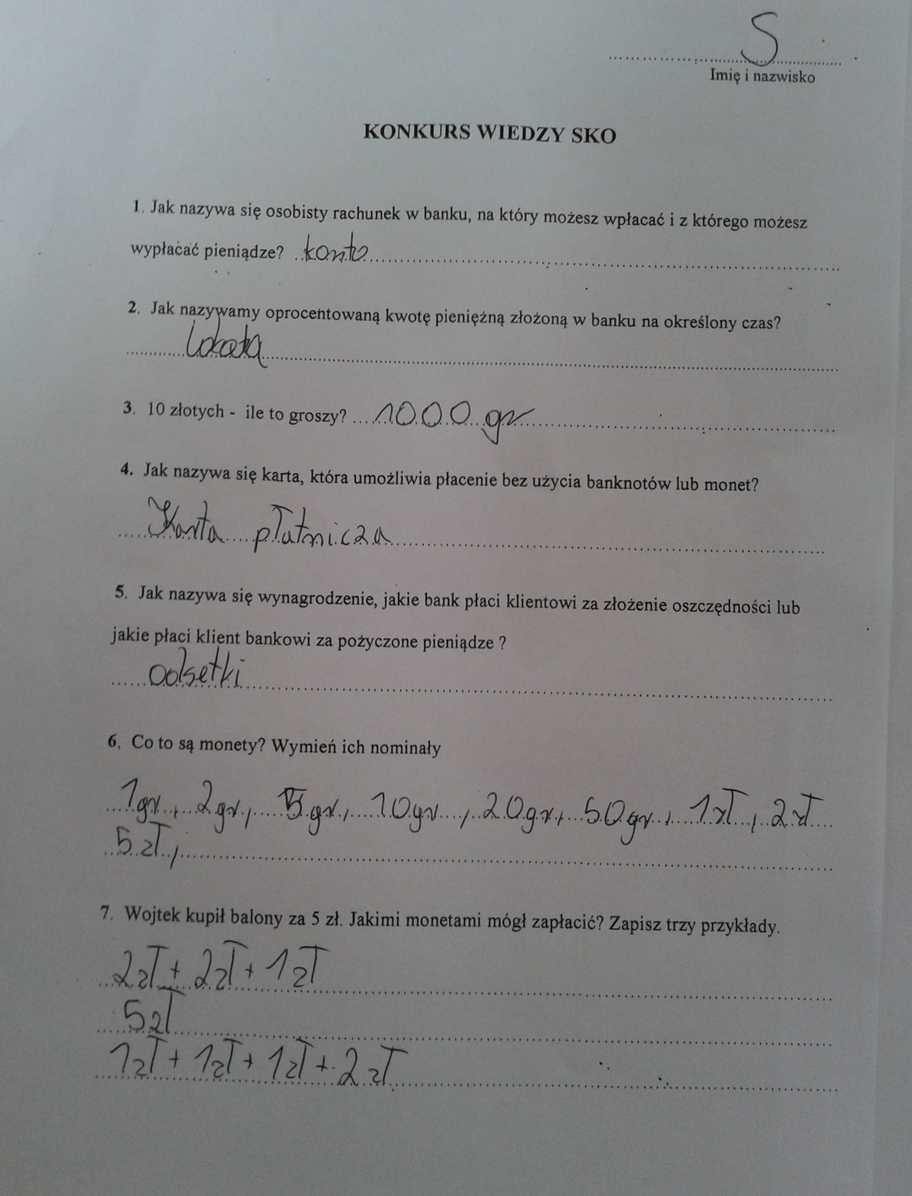 S
Imię i nazwisko
KONKURS WIEDZY SKO
1. Jak nazywa się osobisty rachunek w banku, na który możesz wpłacać i z którego możesz
wypłacać pieniądze? konto
2. Jak nazywamy oprocentowaną kwotę pieniężną złożoną w banku na określony czas?
lokata
3. 10 złotych - ile to groszy? 1000 gr
4. Jak nazywa się karta, która umożliwia płacenie bez użycia banknotów lub monet?
Karta płatnicza
5. Jak nazywa się wynagrodzenie, jakie bank płaci klientowi za złożenie oszczędności lub
jakie płaci klient bankowi za pożyczone pieniądze ?
odsetki
6. Co to są monety? Wymień ich nominały
1gr, 2gr, 5gr, 10gr, 20gr, 50gr, 1zł, 2zł
5zł,
7. Wojtek kupił balony za 5 zł. Jakimi monetami mógł zapłacić? Zapisz trzy przykłady.
2zł + 2zł + 1zł
5zł
1zł + 1zł + 1zł + 2zł